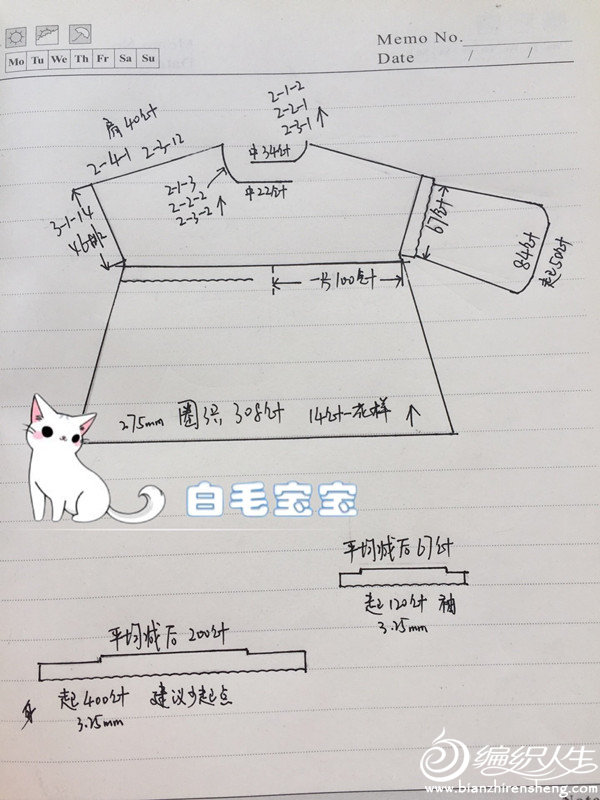 Memo No.
Mo Tu We Th Fr Sa Su
Date / /
肩40针
2-4-1 2-3-12
2-1-2
2-2-1
2-3-1↑
中34针
2-1-3
2-2-2
2-3-2↑
中22针
3-1-14
67针
84针
起50针
一片100针
275mm 圈织 308针 14针一花样 ↑
白毛宝宝
平均减后67针
起120针 袖
3.25mm
平均减后200针
身 起400针 建议少起点
3.25mm
编织人生
www.bianzhirensheng.com